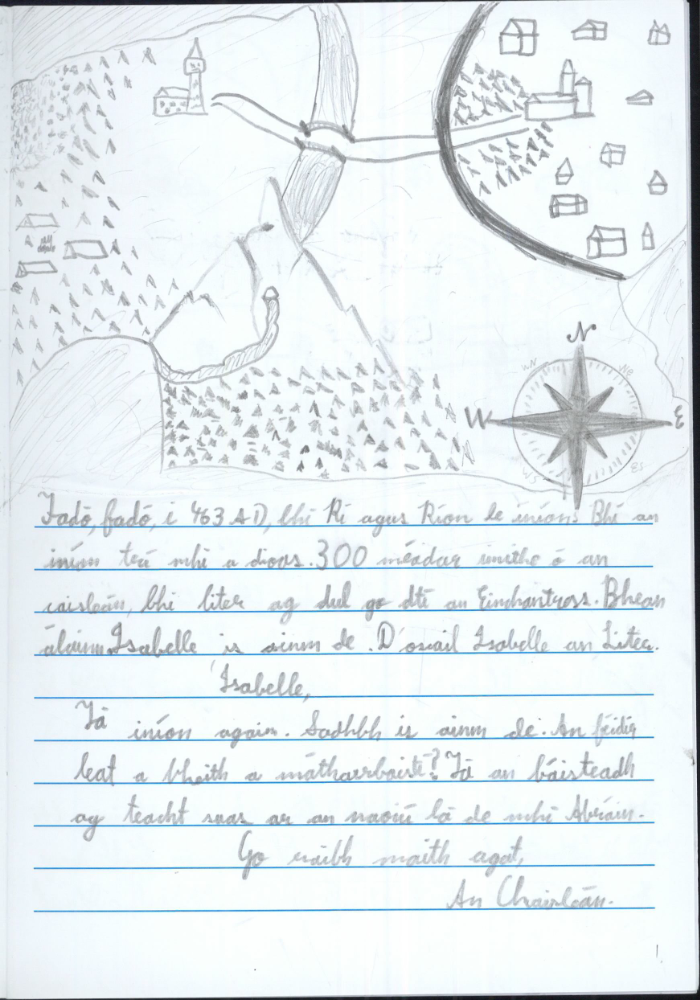 N
WN
NE
W
E
WS
ES
Fadó, fadó, i 463 AD, bhí Rí agus Ríon le iníon. Bhí an
iníon trí mhí a d'aois. 300 méadar imithe ó an
caisleán, bhí liter ag dul go dtí an Einchantross. Bhean
álainn. Isabelle is ainm de. D'oscail Isabelle an Liter.
'Isabelle,
Tá iníon again. Sadhbh is ainm de. An féidir
leat a bheith a máthairbaisté? Tá an báisteadh
ag teacht suas ar an naoiú lá de mhí Abráin.
Go raibh maith agat,
An Chaisleán.
1.